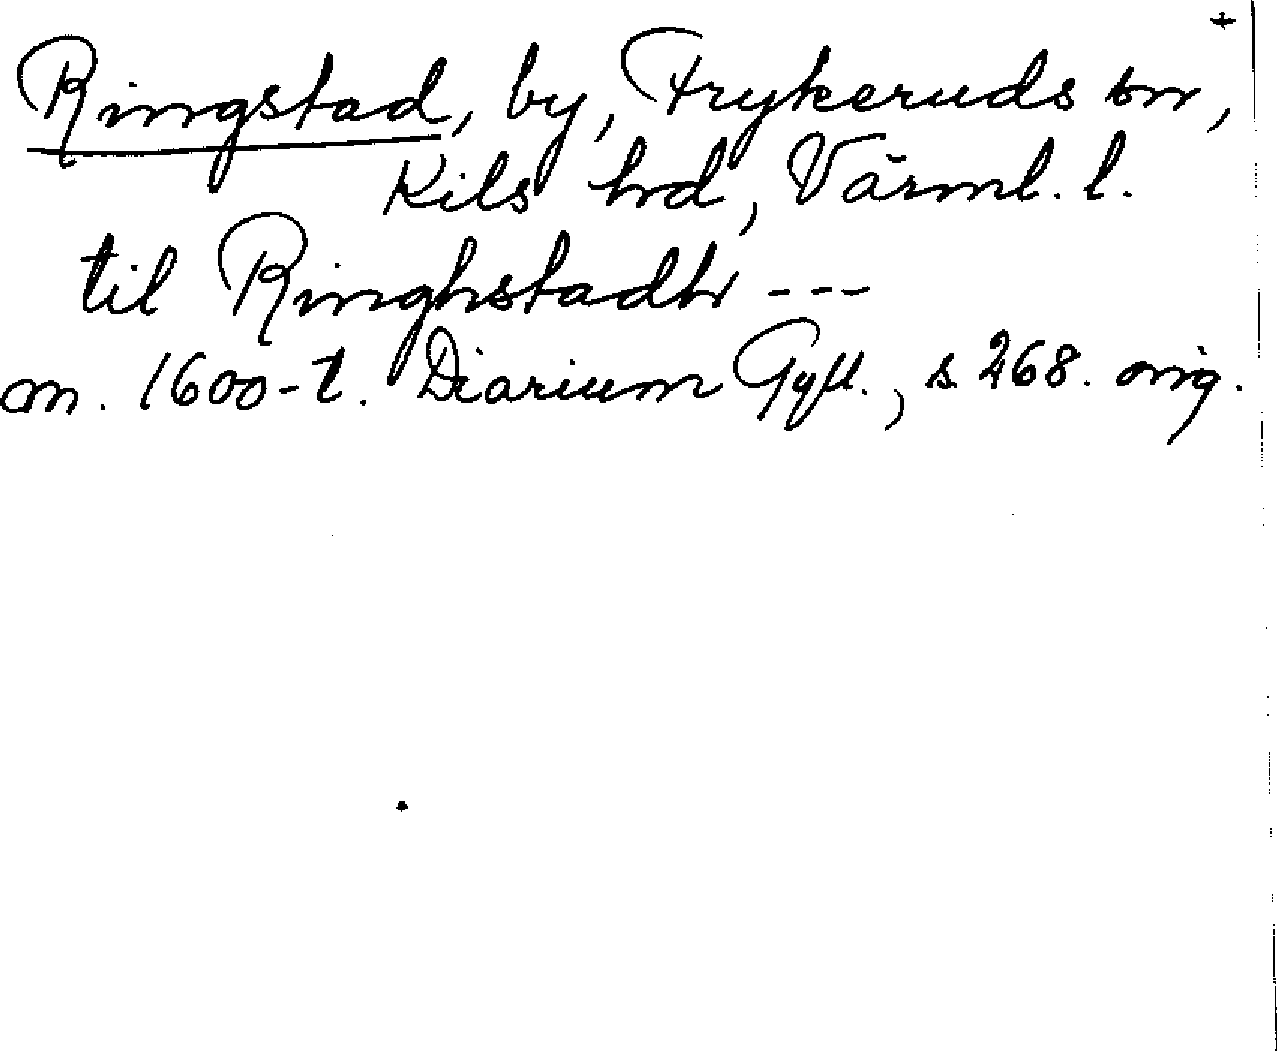 +
Ringstad, by, Frykeruds sn,
Kils hd, Värml. l.
til Ringhstadh ---
m. 1600-t. Diarium Gyll., s 268. orig.